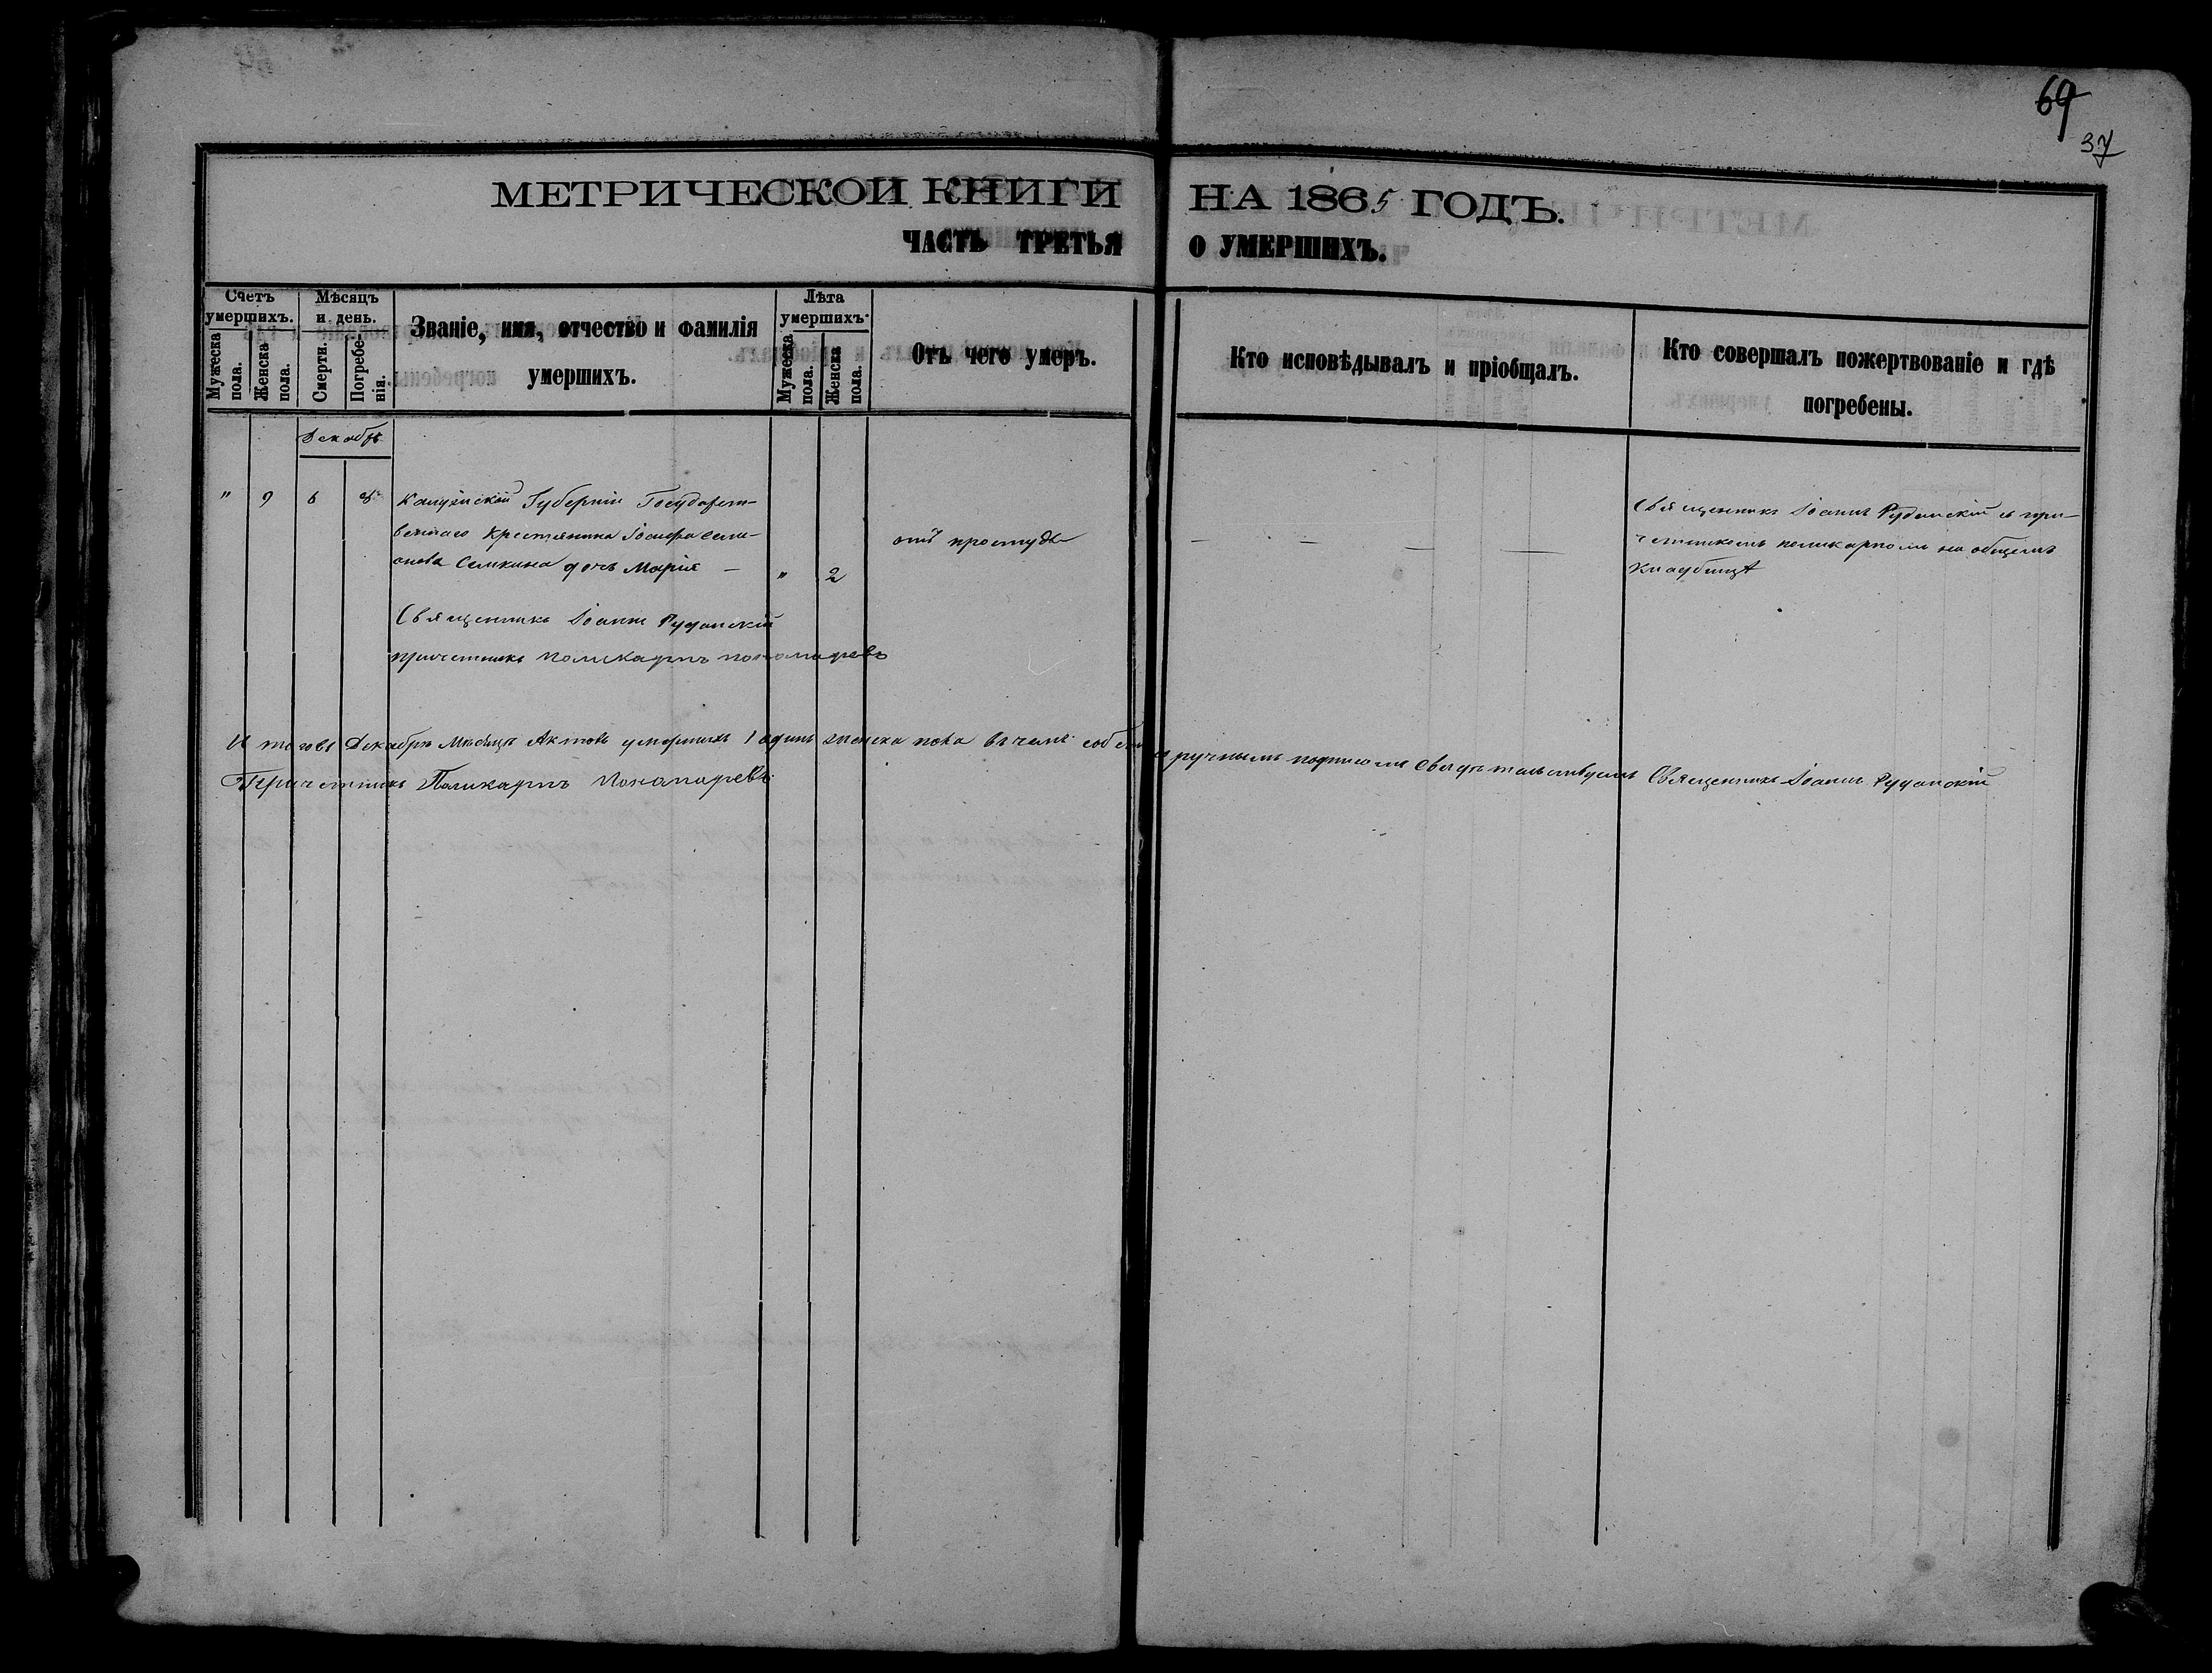 69
37
МЕТРИЧЕСКОЙ КНИГИ НА 1865 ГОДЪ.
ЧАСТЬ ТРЕТЬЯ О УМЕРШИХЪ.
Счетъ умершихъ.
Мужеска пола.
Женска пола.
Мѣсяцъ и день.
Смерти.
Погребенія.
Званіе, имя, отчество и фамилія умершихъ.
Лѣта умершихъ.
Мужеска пола.
Женска пола.
Отъ чего умеръ.
Кто исповѣдывалъ и пріобщалъ.
Кто совершалъ пожертвованіе и гдѣ погребены.
Декабрь
" 9 6 8
Губерніи Государст-
веннаго Крестянина Іосифа Семи-
онова Семкина дочь Марія —
" 2
отъ простуды
— — — —
Священникъ Іоаннъ Рудонскій съ при-
четникомъ поликарпомъ на общемъ
кладбищѣ
Священникъ Іоаннъ Рудонскій
причетникъ поликарпъ пономаревъ
Итого въ Декабрѣ Мѣсяцѣ Актовъ умершихъ 1 одинъ женска пола въ чемъ собственноручнымъ подписомъ свидѣтельствуемъ Священникъ Іоаннъ Рудонскій
Причетникъ Поликарпъ Пономаревъ